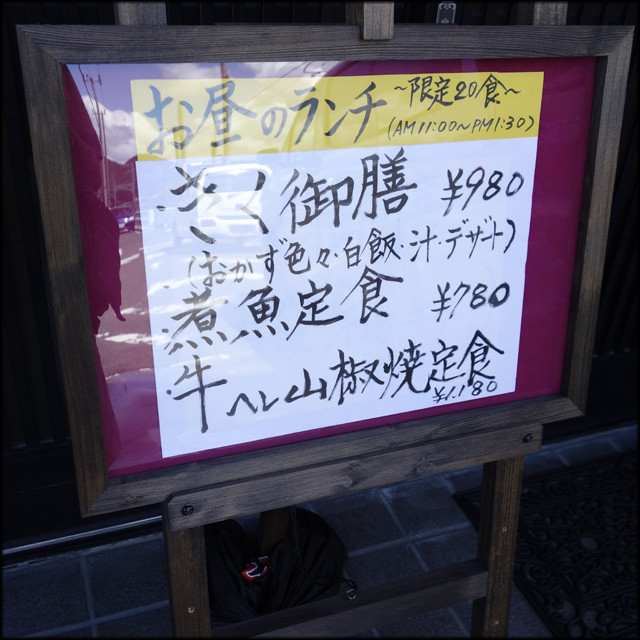 お昼のランチ ～限定20食～
(AM11:00～PM1:30)
きく御膳 ¥980
(おかず色々・白飯・汁・デザート)
煮魚定食 ¥780
牛ヘレ山椒焼定食
¥1.180